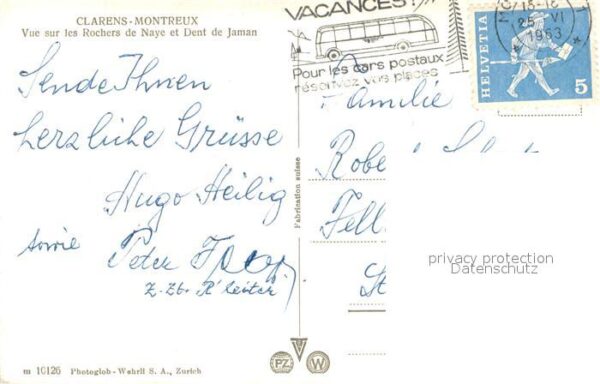 CLARENS-MONTREUX
Vue sur les Rochers de Naye et Dent de Jaman
VACANCES!
Pour les cars postaux
réservez vos places
15-16
25. VI
1963
HELVETIA
5
Sende Ihnen
herzliche Grüsse
Hugo Heilig
sowie
Peter
z. Zt.
Familie
Fabrication suisse
privacy protection
Datenschutz
m 10126 Photoglob-Wehrli S. A., Zurich
PZ W